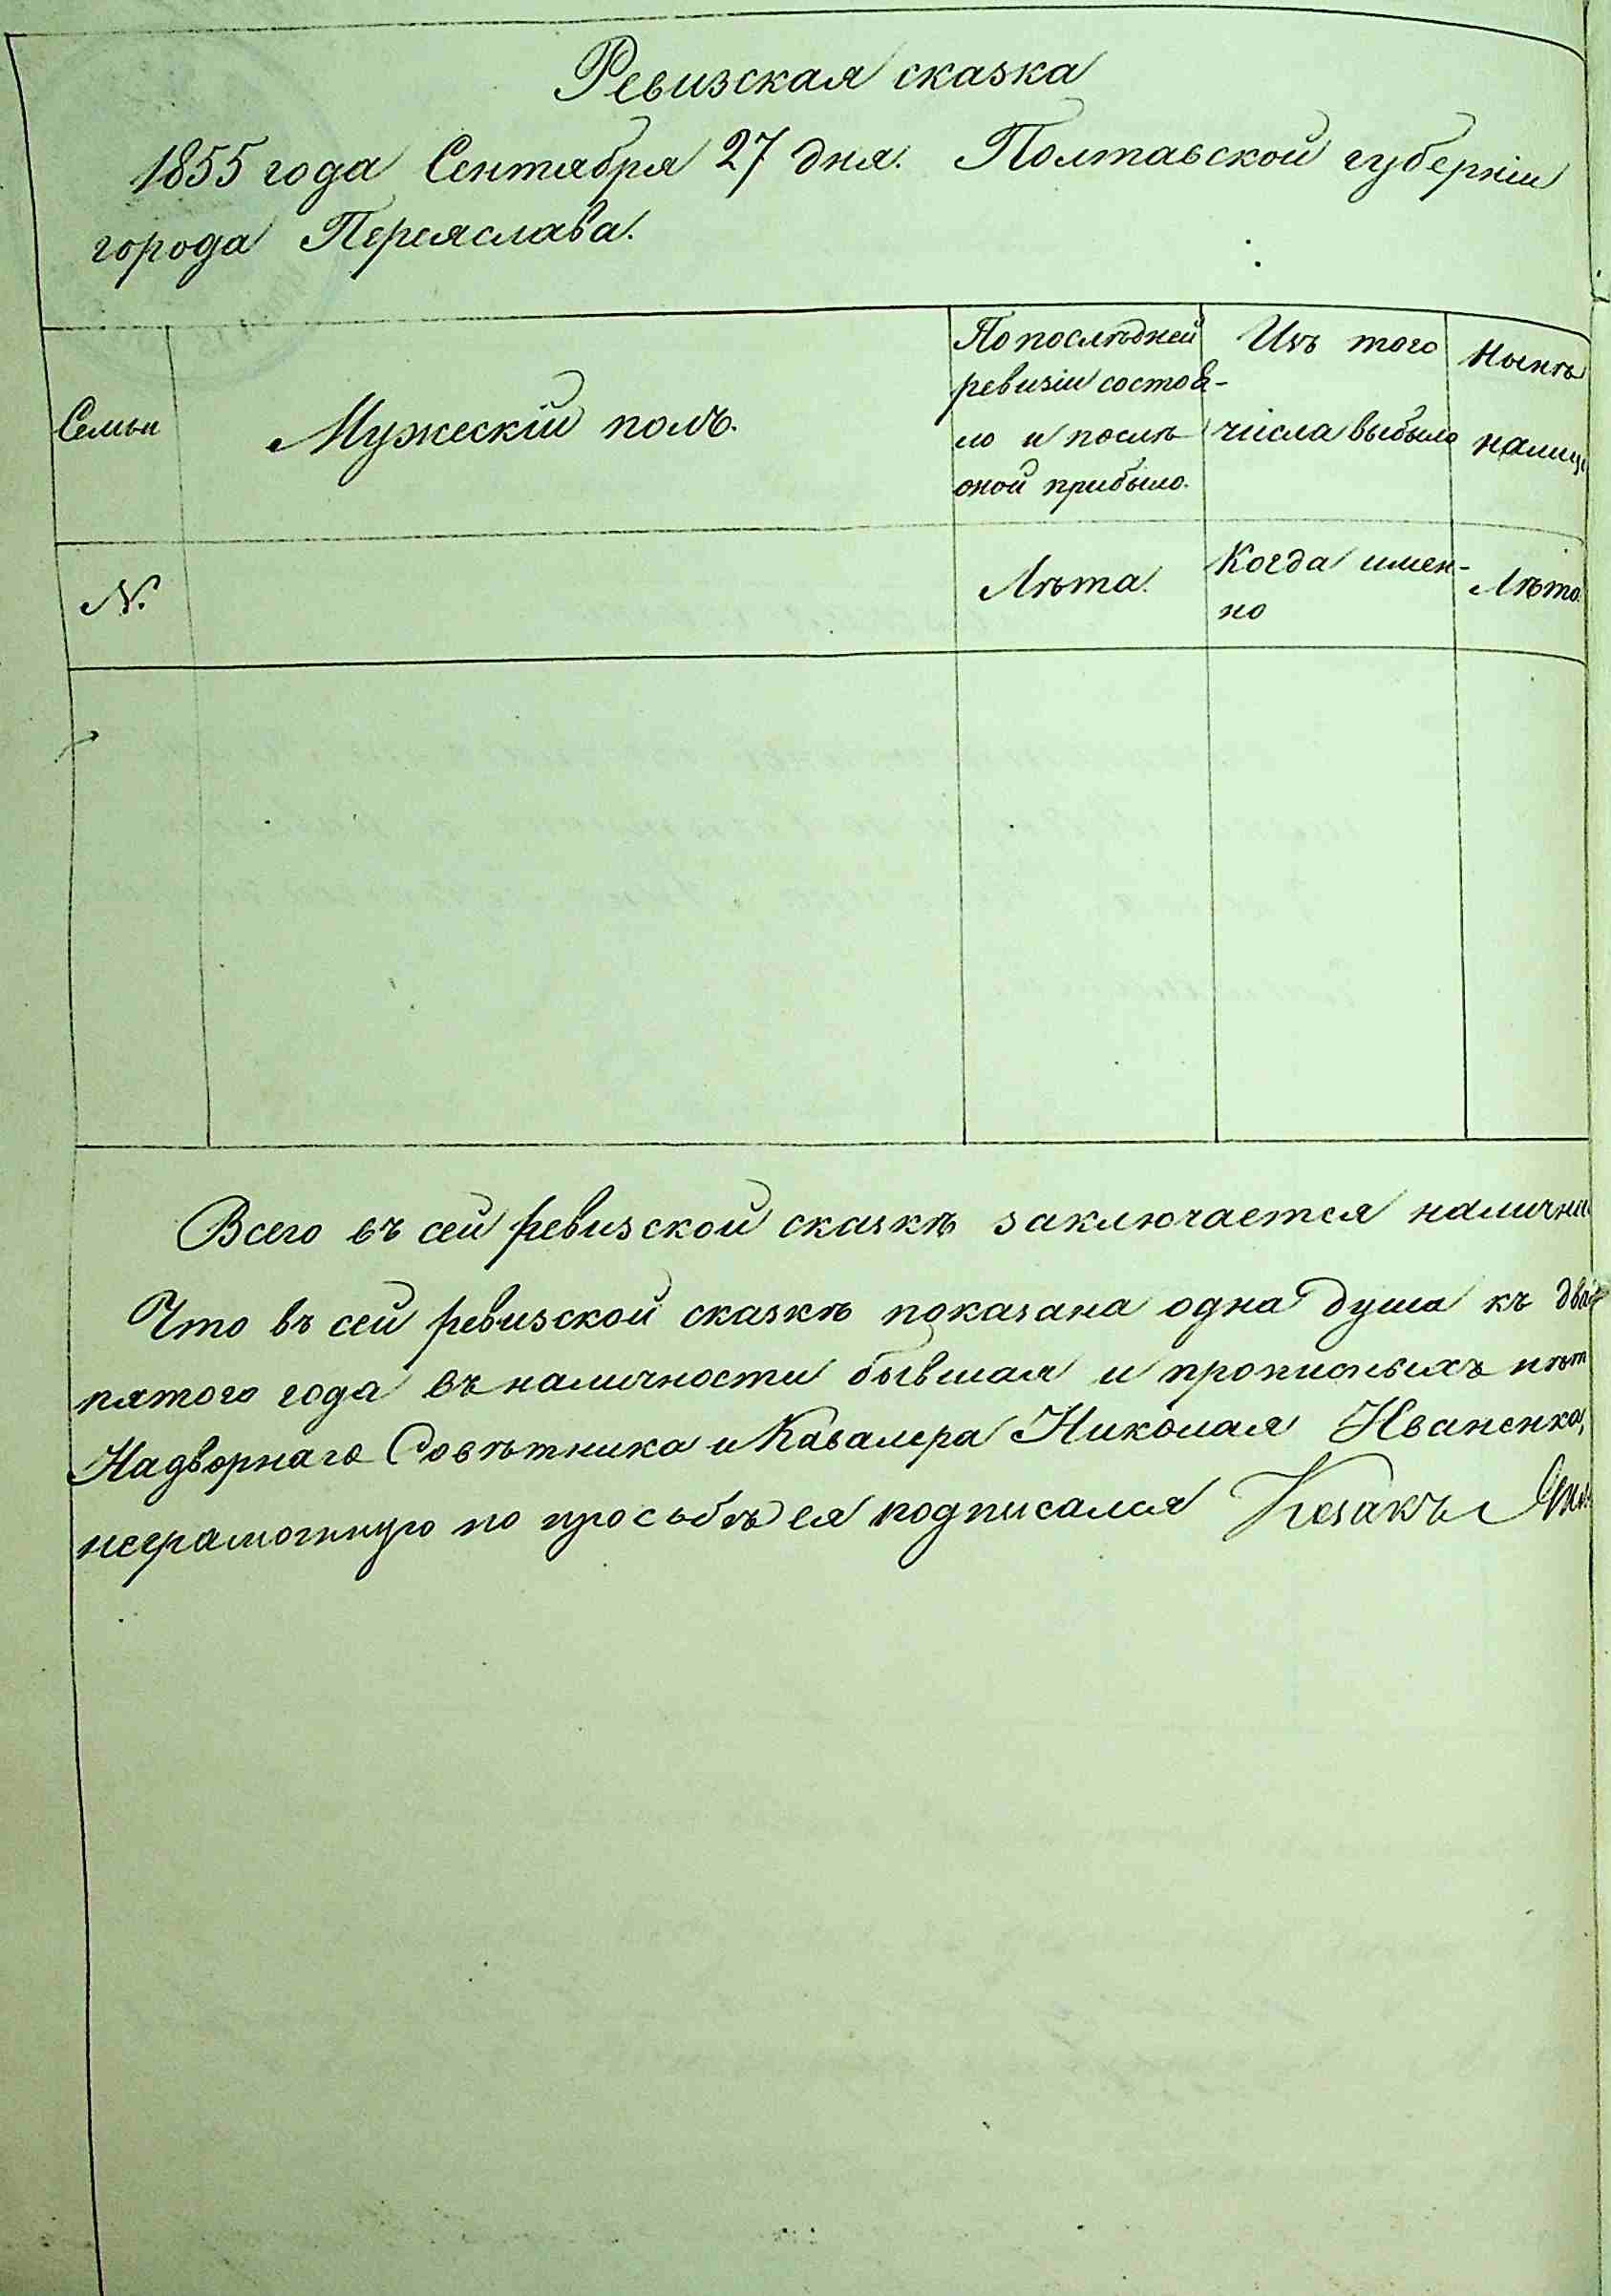 Ревизская сказка
1855 года Сентября 27 дня. Полтавской губерніи
города Переяслава.
Семьи
Мужескій полъ.
По послѣдней
ревизіи состоя-
ло и послѣ
оной прибыло.
Изъ того
числа выбыло
Нынѣ
налиц
№
Лѣта.
Когда имен-
но
Лѣта
Всего въ сей ревизской сказкѣ заключается налично
Что въ сей ревизской сказкѣ показана одна душа къ два
пятого года въ наличности бывшая и прописныхъ нѣт
Надворнаго Совѣтника и Кавалера Николая Иваненка,
неграмотную по просьбѣ ея подписался Козакъ